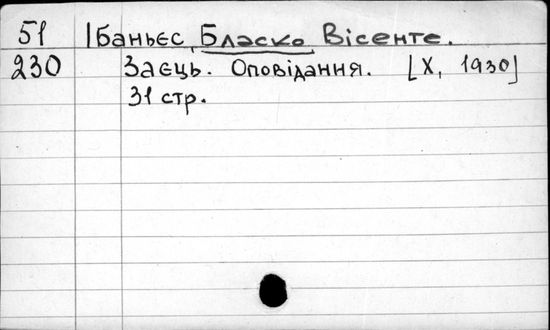 51 Ібаньєс, Бласко Вісенте.
230 Заєць. Оповідання. [X, 1930]
31 стр.